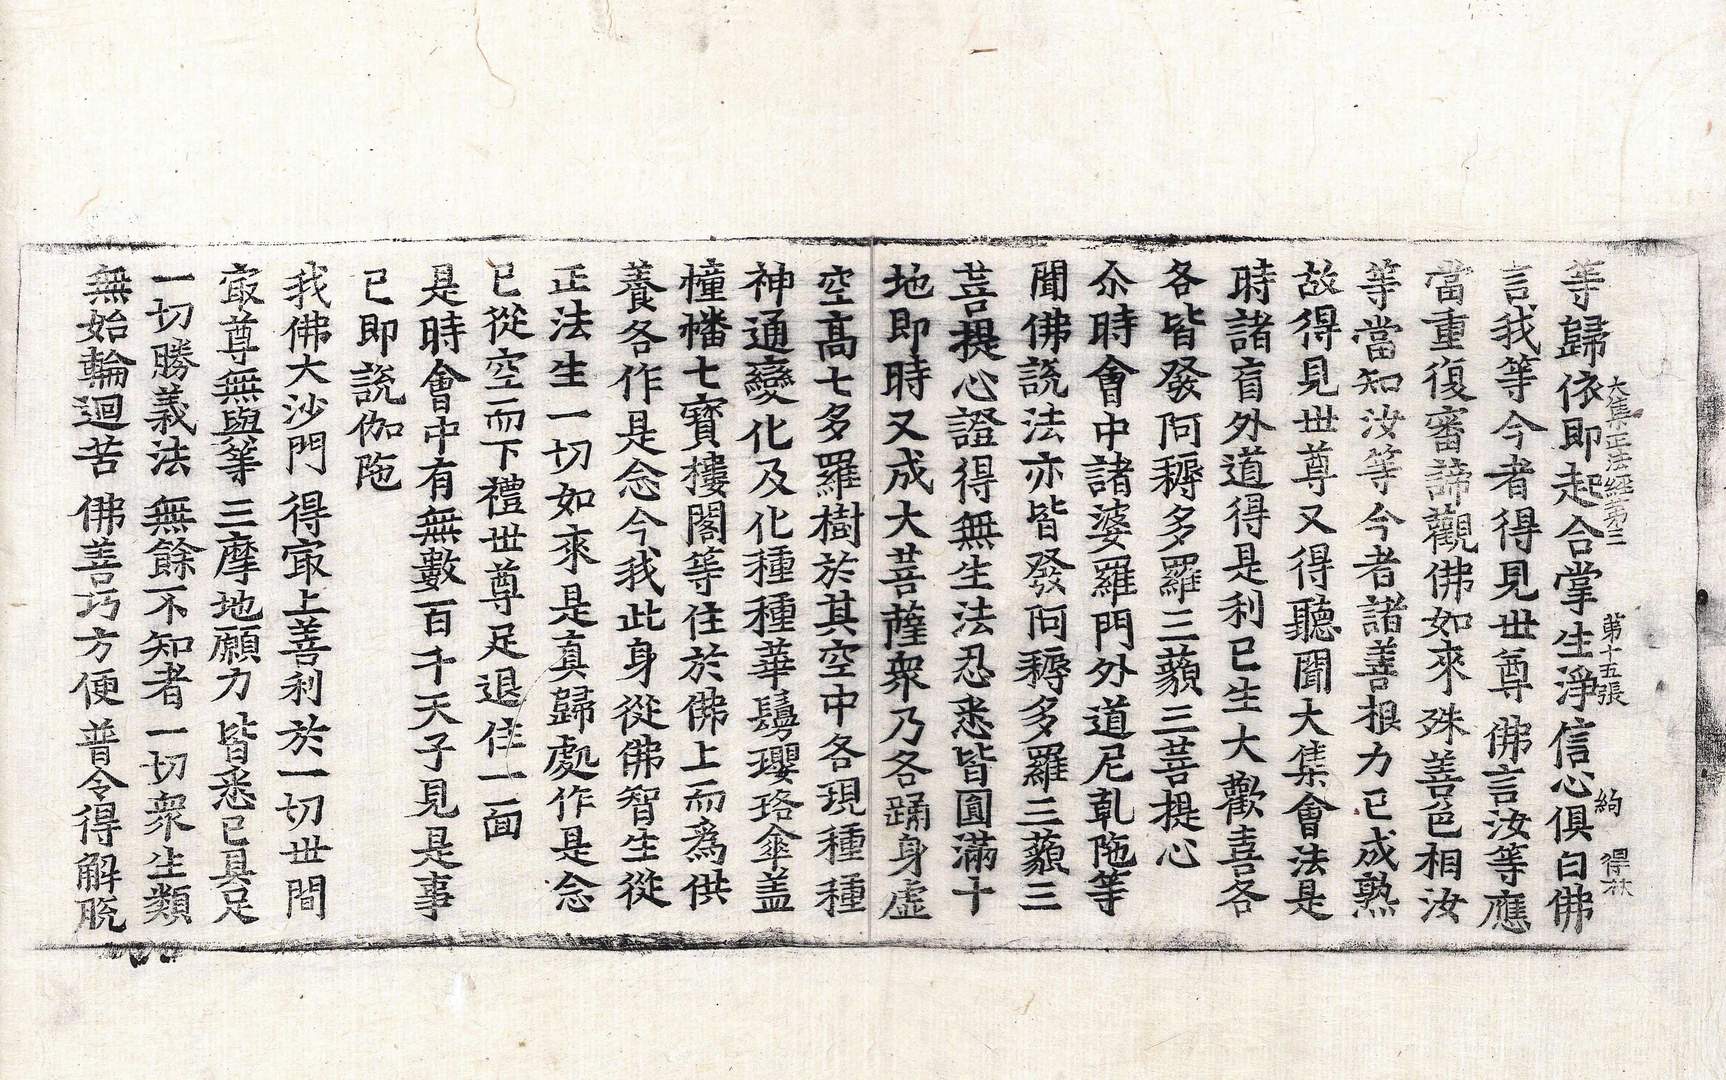 大集正法經第三　第十五張　絢　得林
等歸依即起合掌生淨信心俱白佛
言我等今者得見世尊佛言汝等應
當重復審諦觀佛如來殊善色相汝
等當知汝等今者諸善根力已成熟
故得見世尊又得聽聞大集會法是
時諸盲外道得是利已生大歡喜各
各皆發阿耨多羅三藐三菩提心
尒時會中諸婆羅門外道尼乹陁等
聞佛說法亦皆發阿耨多羅三藐三
菩提心證得無生法忍悉皆圓滿十
地即時又成大菩薩衆乃各踊身虛
空高七多羅樹於其空中各現種種
神通變化及化種種華鬘瓔珞傘盖
幢幡七寶樓閣等住於佛上而爲供
養各作是念今我此身從佛智生從
正法生一切如來是真歸處作是念
已從空而下禮世尊足退住一面
是時會中有無數百千天子見是事
已即說伽陁
我佛大沙門　得冣上善利於一切世間
冣尊無與等　三摩地願力　皆悉已具足
一切勝義法　無餘不知者　一切衆生類
無始輪迴苦　佛善巧方便　普令得解脫